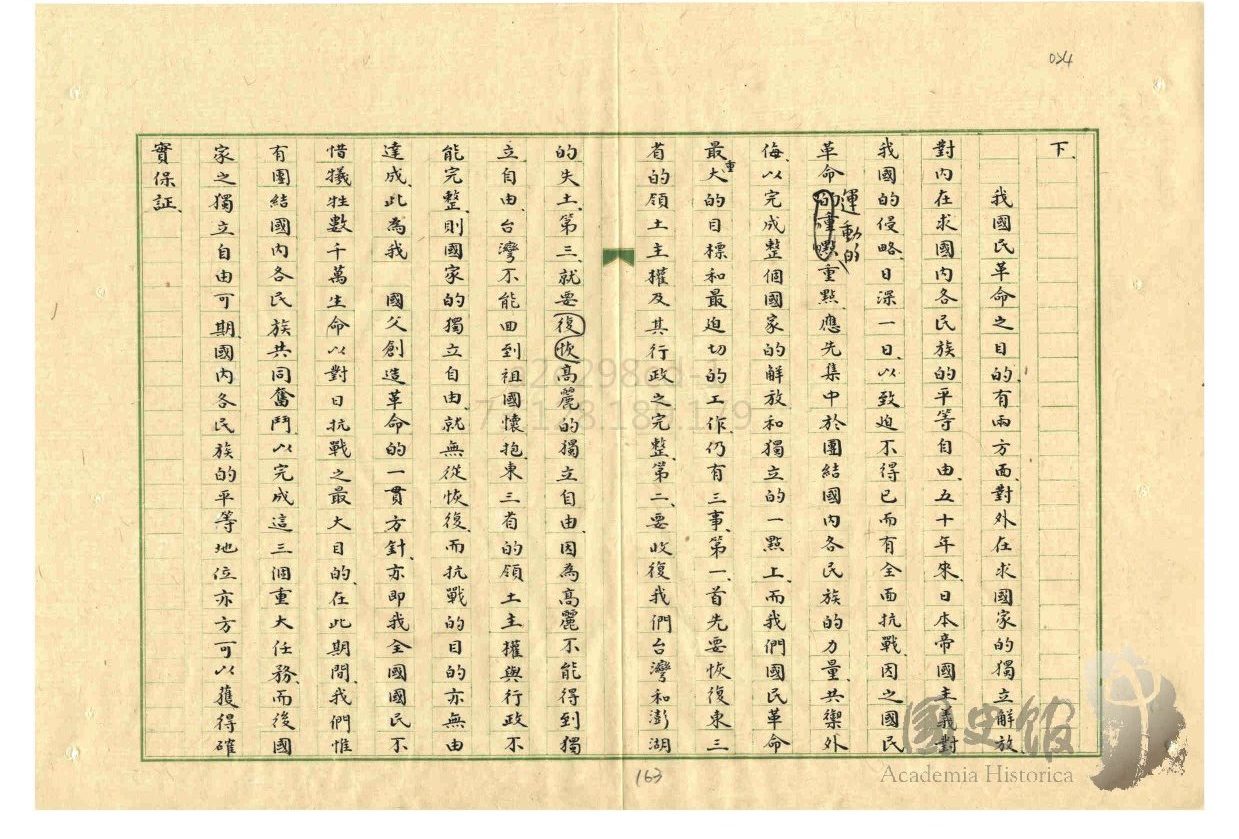 024
下、
我國民革命之目的、有兩方面、對外在求國家的獨立解放
對內在求國內各民族的平等自由、五十年來、日本帝國主義對
我國的侵略、日深一日、以致迫不得已而有全面抗戰、因之國民
革命運動的重點、應先集中於團結國內各民族的力量、共禦外
侮、以完成整個國家的解放和獨立的一點上、而我們國民革命
最重大的目標和最迫切的工作、仍有三事、第一、首先要恢復東三
省的領土主權及其行政之完整、第二、要收復我們台灣和澎湖
的失土、第三、就要復恢高麗的獨立自由、因為高麗不能得到獨
立自由、台灣不能回到祖國懷抱、東三省的領土主權與行政不
能完整、則國家的獨立自由、就無從恢復、而抗戰的目的亦無由
達成、此為我 國父創造革命的一貫方針、亦即我全國國民不
惜犧牲數千萬生命以對日抗戰之最大目的、在此期間、我們惟
有團結國內各民族共同奮鬥、以完成這三個重大任務、而後國
家之獨立自由可期、國內各民族的平等地位亦方可以獲得確
實保証、
163
國史館
Academia Historica